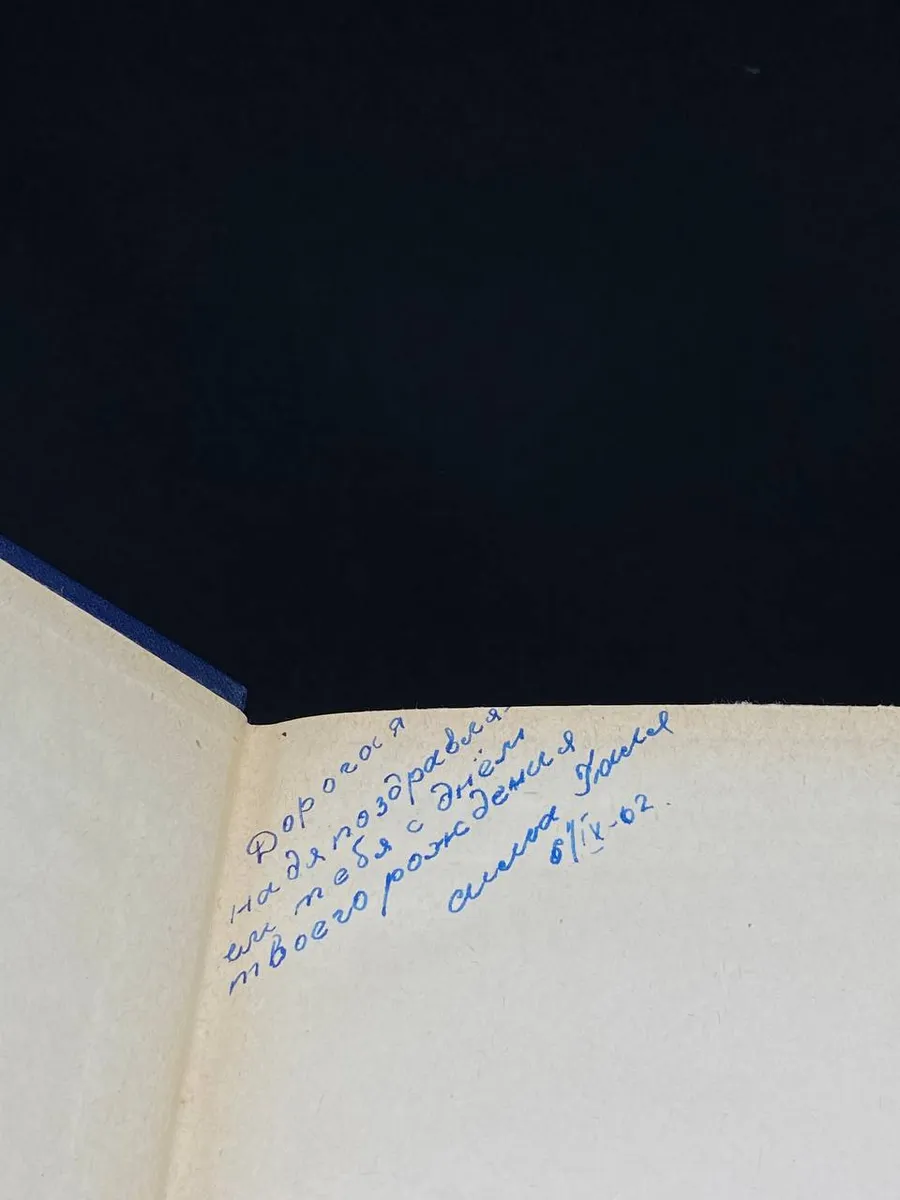 Дорогая
надя поздравля-
ем тебя с днём
твоего рождения
Галя
6/IX-62.